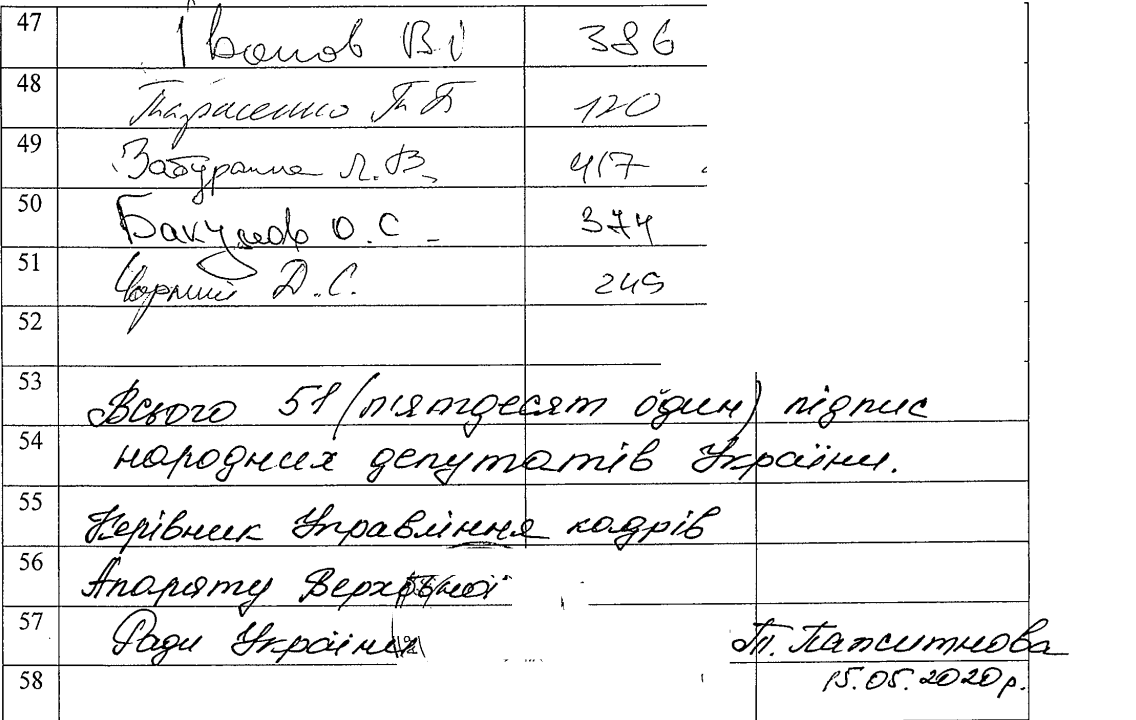 47 Іванов В І 386
48 Тарасенко Т П 120
49 Забуранна Л.В. 417
50 Бакумов О.С. 374
51 Чорний Д.С. 245
52
53 Всього 51 (п'ятдесят один) підпис
54 народних депутатів України.
55 Керівник Управління кадрів
56 Апарату Верховної
57 Ради України Т.
58 15.05.2020 р.